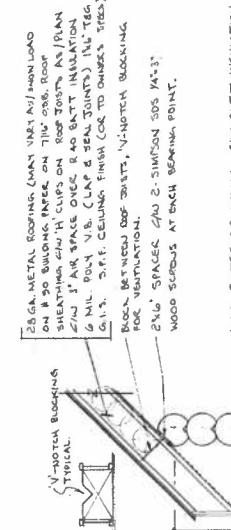 28 GA. METAL ROOFING (MAY VARY AS/ SNOW LOAD
ON # 30 BUILDING PAPER ON 7/16" O.S.B. ROOF
SHEATHING C/W 'H' CLIPS ON ROOF JOISTS AS/PLAN
C/W 3" AIR SPACE OVER R 40 BATT INSULATION
6 MIL. POLY V.B. (LAP & SEAL JOINTS) 1x6 T&G
G.I.S. S.P.F. CEILING FINISH (OR TO OWNER'S SPECS)
BLOCK BETWEEN ROOF JOISTS, 'V'-NOTCH BLOCKING
FOR VENTILATION.
2"x6" SPACER C/W 2- SIMPSON SDS 1/4"x3"
WOOD SCREWS AT EACH BEARING POINT.
'V'-NOTCH BLOCKING
TYPICAL.